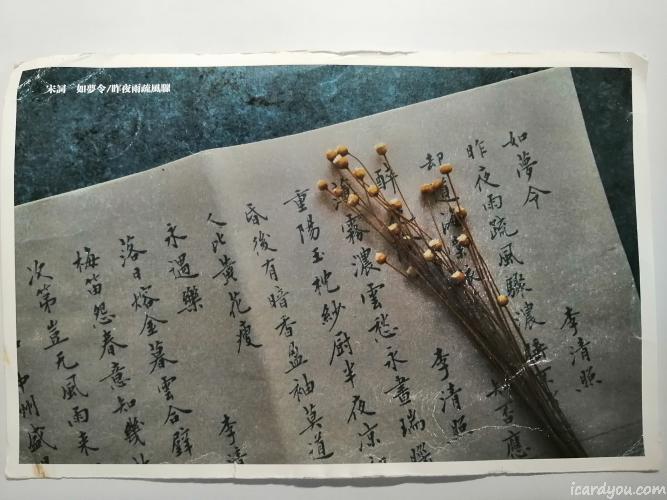 宋詞 如夢令/昨夜雨疏風驟
如夢令 李清照
昨夜雨疏風驟濃睡
却道海棠 知否應
醉 李清照
霧濃雲愁永晝瑞
重陽玉枕紗厨半夜凉
昏後有暗香盈袖莫道
人比黃花瘦
永遇樂 李清
落日熔金暮雲合璧
梅笛怨春意知幾
次第豈无風雨来
中州盛
icardyou.com